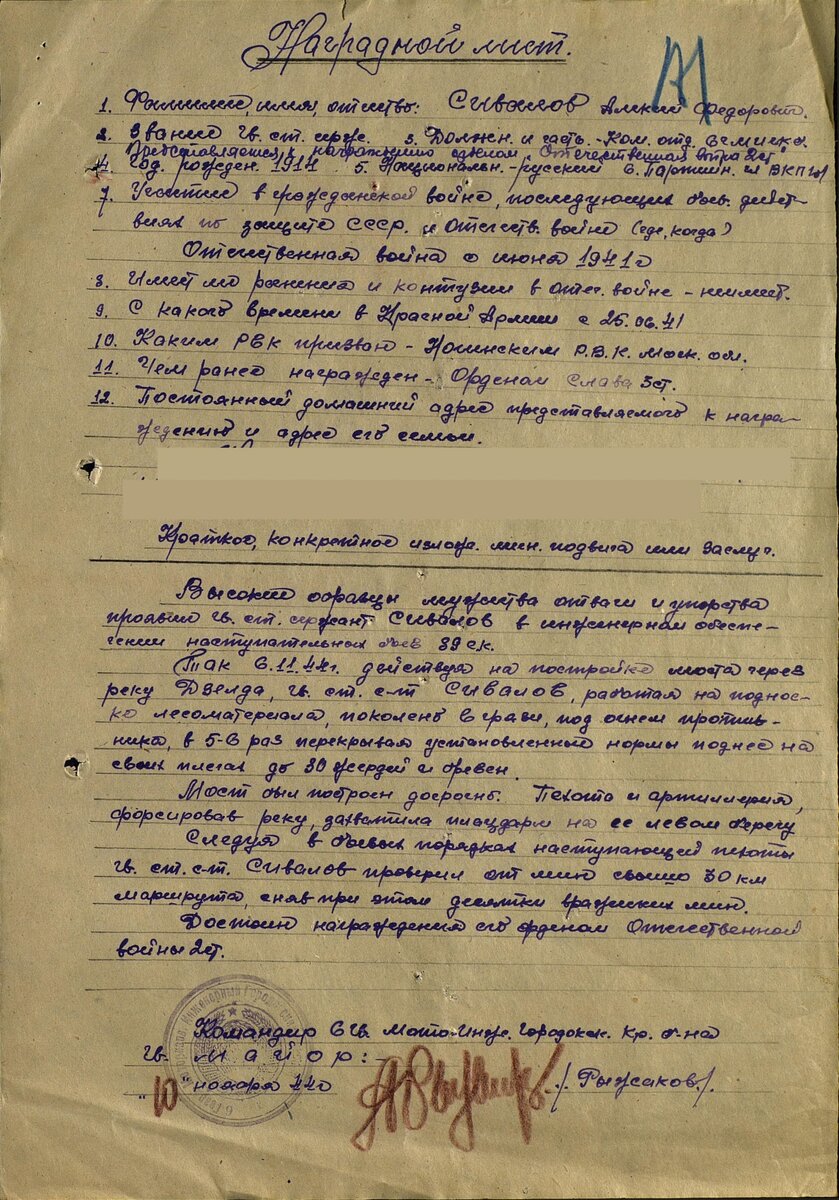 Наградной лист.
1. Фамилия, имя, отчество: Сивалов Алексей Федорович.
2. Звание гв. ст. серж. 3. Должн. и часть - Ком. отд.
Представляется к награждению орденом Отечественная война 2ст
4. Год рожден. 1914. 5. Национальн. - русский 6. Партийн. чл ВКП(б)
7. Участие в гражданской войне, последующих боев. дейст-
виях по защите СССР. и Отечеств. войне (где, когда)
Отечественная война с июня 1941г
8. Имеет ли ранения и контузии в отеч. войне - неимеет.
9. С какого времени в Красной Армии с 25.06.41
10. Каким РВК призван - Ногинским Р.В.К. Моск. обл.
11. Чем ранее награжден - Орденом Слава 3ст.
12. Постоянный домашний адрес представляемого к награ-
ждению и адрес его семьи.
Краткое, конкретное излож. личн. подвига или заслуг.
Высокий образцы мужества отваги и упорства
проявил гв. ст. сержант Сивалов в инженерном обеспе-
чении наступательных боев 89 ск.
Так 6.11.44г. действуя на постройке моста через
реку Дзелда, гв. ст. с-т Сивалов, работая на поднос-
ке лесоматериала, поколено в грязи, под огнем против-
ника, в 5-6 раз перекрывая установленные нормы поднес на
своих плечах до 30 жердей и бревен.
Мост был построен досрочно. Пехота и артиллерия,
форсировав реку, захватила плацдарм на ее левом берегу
Следуя в боевых порядках наступающей пехоты
гв. ст. с-т. Сивалов проверил от мин свыше 30 км
маршрута, сняв при этом десятки вражеских мин.
Достоин награждения его орденом Отечественной
войны 2ст.
Командир 6 гв. Мото-Инж. Городокск. Кр. б-на
гв. майор:-
/Рыжаков/.
"10" ноября 44г